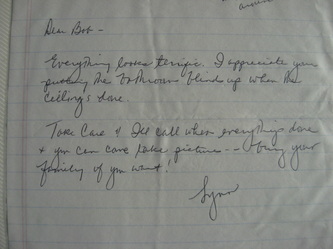 around
Dear Bob -
Everything looks terrific. I appreciate your
putting the bathroom blind up when the
ceiling's done.
Take Care & I'll call when everything's done
& you can come take pictures -- bring your
family if you want!
Lynn